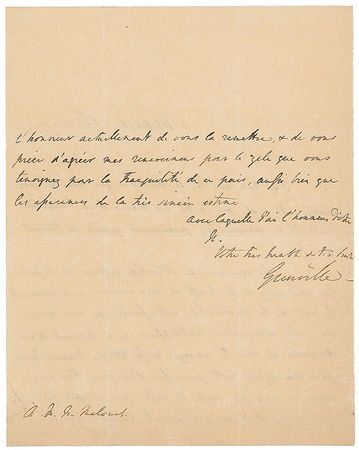 l'honneur actuellement de vous la remettre, & de vous
prier d'agréer mes remercimens pour le zele que vous
temoignez pour la tranquilité de ce païs, aussi bien que
les assurances de la très sincère estime
avec laquelle j'ai l'honneur d'être
M.
Votre très humble &
Grenville
A M. M. Malouet